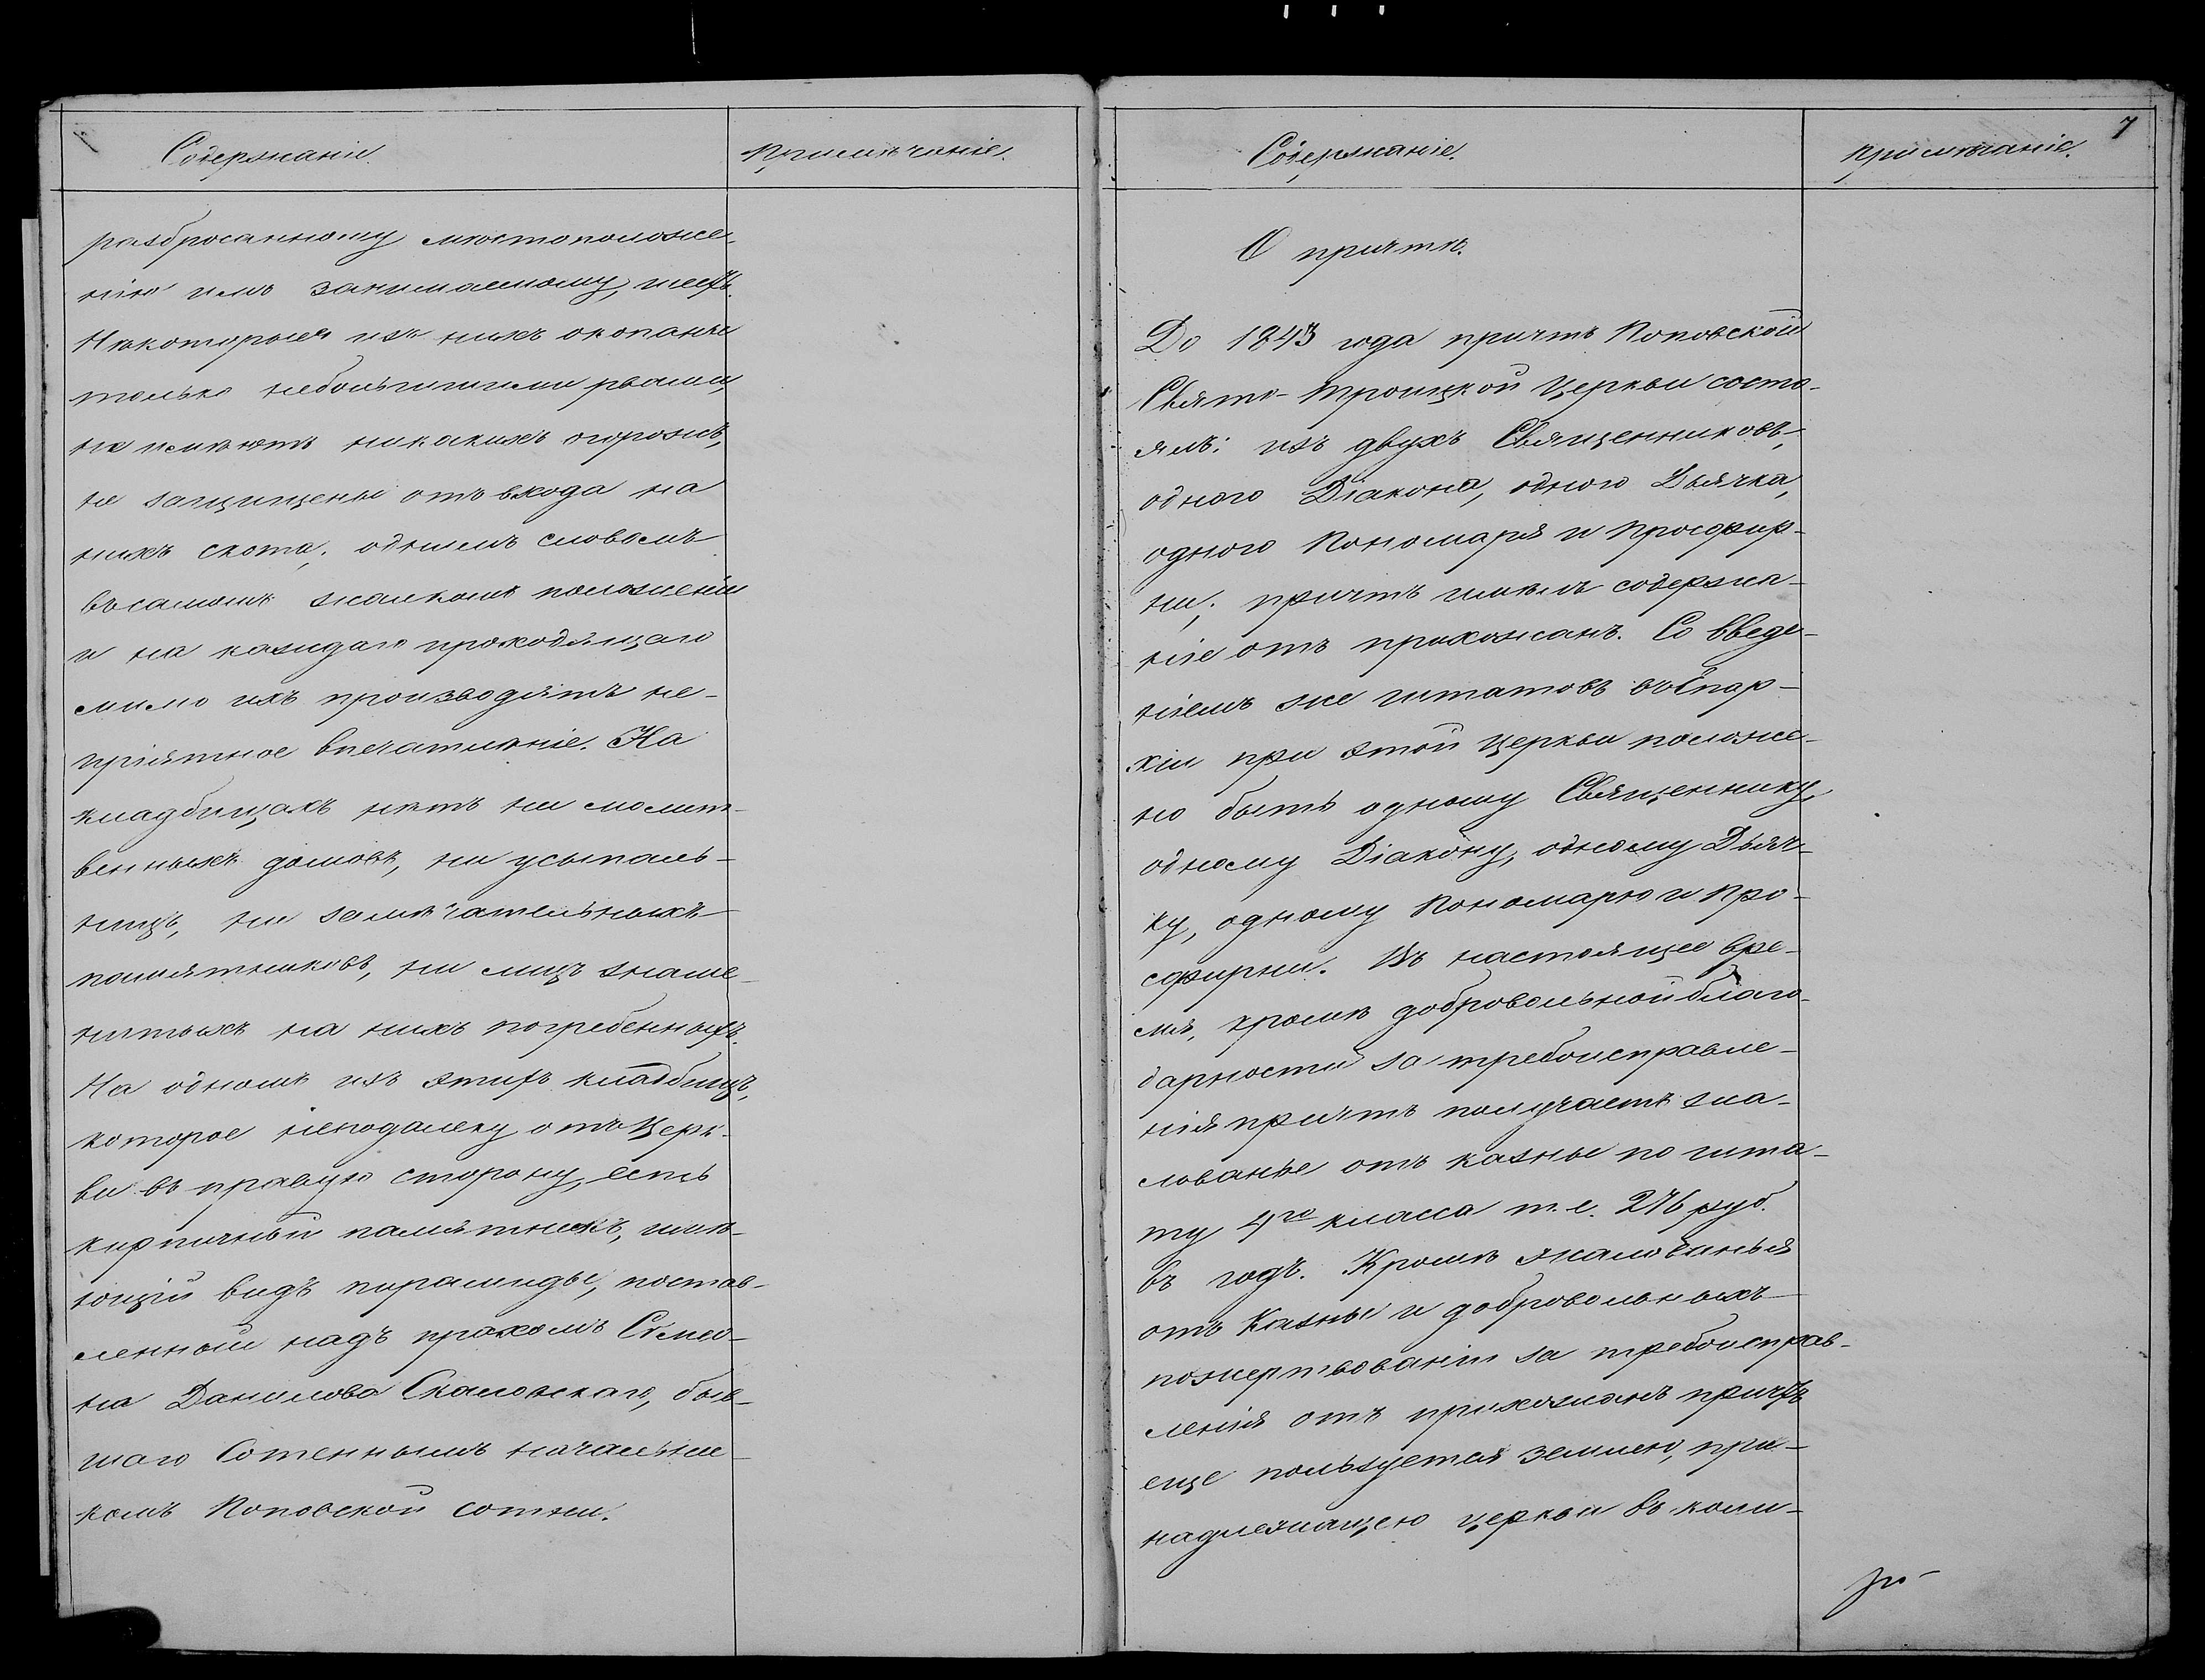 Содержаніе.
Примѣчаніе.
разбросанному мѣстоположе-
нію имъ занимаемому,
Нѣкоторыя изъ нихъ окопаны
только небольшими рвами,
не имѣютъ никакихъ огорожъ,
не защищены отъ входа на
нихъ скота; однимъ словомъ
въ самомъ жалкомъ положеніи
и на каждаго проходящаго
мимо ихъ производятъ не-
пріятное впечатлѣніе. На
кладбищахъ нѣтъ ни молит-
венныхъ домовъ, ни усыпаль-
ницъ, ни замѣчательныхъ
памятниковъ, ни лицъ знаме-
нитыхъ на нихъ погребенныхъ.
На одномъ изъ этихъ кладбищъ,
которое неподалеку отъ Церк-
ви въ правую сторону, есть
кирпичный памятникъ, имѣ-
ющій видъ пирамиды, постав-
ленный надъ прахомъ Семео-
на Данилова Скаловскаго, быв-
шаго Сотеннымъ начальни-
комъ Поповской сотни.
7
Содержаніе.
Примѣчаніе.
О причтѣ.
До 1843 года причтъ Поповской
Свято-Троицкой Церкви состо-
ялъ: изъ двухъ Священниковъ,
одного Діакона, одного Дьячка,
одного Пономаря и Просфир-
ни; причтъ имѣлъ содержа-
ніе отъ прихожанъ. Со введе-
ніемъ же штатовъ въ Епар-
хіи при этой Церкви положе-
но быть одному Священнику,
одному Діакону, одному Дьяч-
ку, одному Пономарю и Про-
сфирни. Въ настоящее вре-
мя, кромѣ добровольной благо-
дарности за требоисправле-
нія причтъ получаетъ жа-
лованье отъ казны по шта-
ту 4го класса т. е. 276 руб.
въ годъ. Кромѣ жалованья
отъ Казны и добровольныхъ
пожертвованій за требоисправ-
ленія отъ прихожанъ причтъ
еще пользуется землею, при-
надлежащею церкви въ коли-